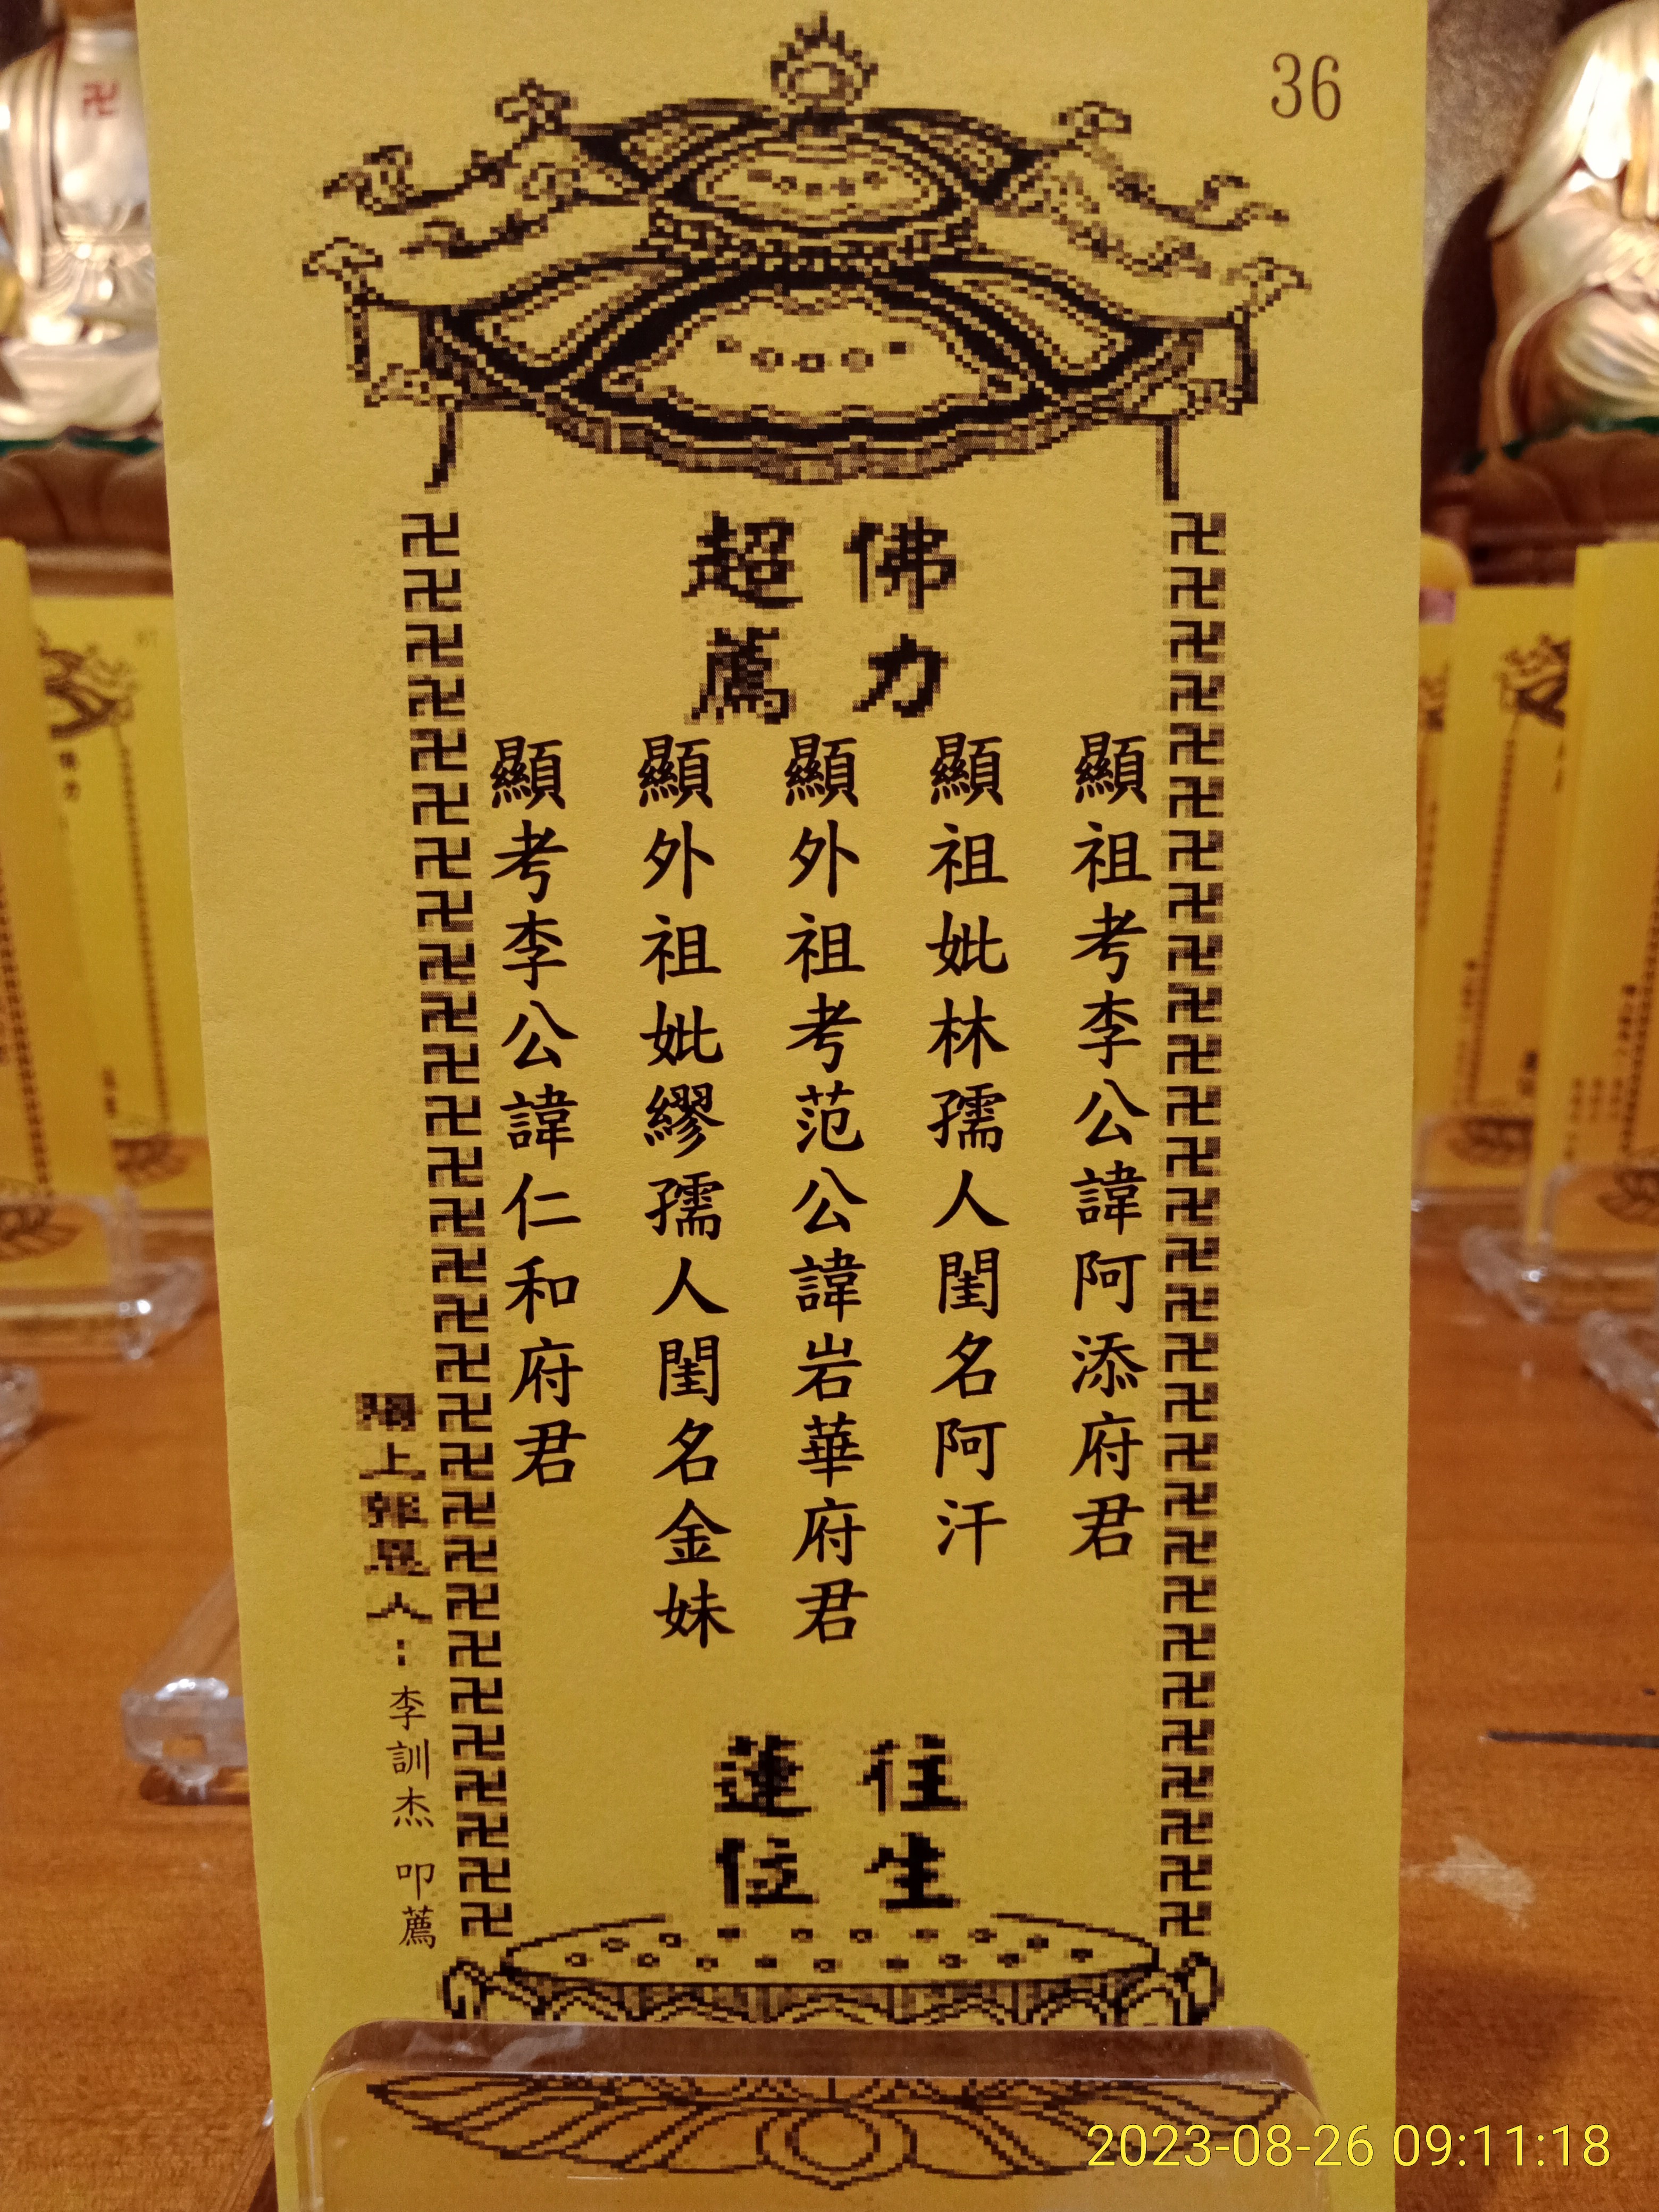 36
佛力
超薦
顯祖考李公諱阿添府君
顯祖妣林孺人閨名阿汗
顯外祖考范公諱岩華府君
顯外祖妣繆孺人閨名金妹
顯考李公諱仁和府君
往生
蓮位
陽上薦恩人：李訓杰 叩薦
2023-08-26 09:11:18